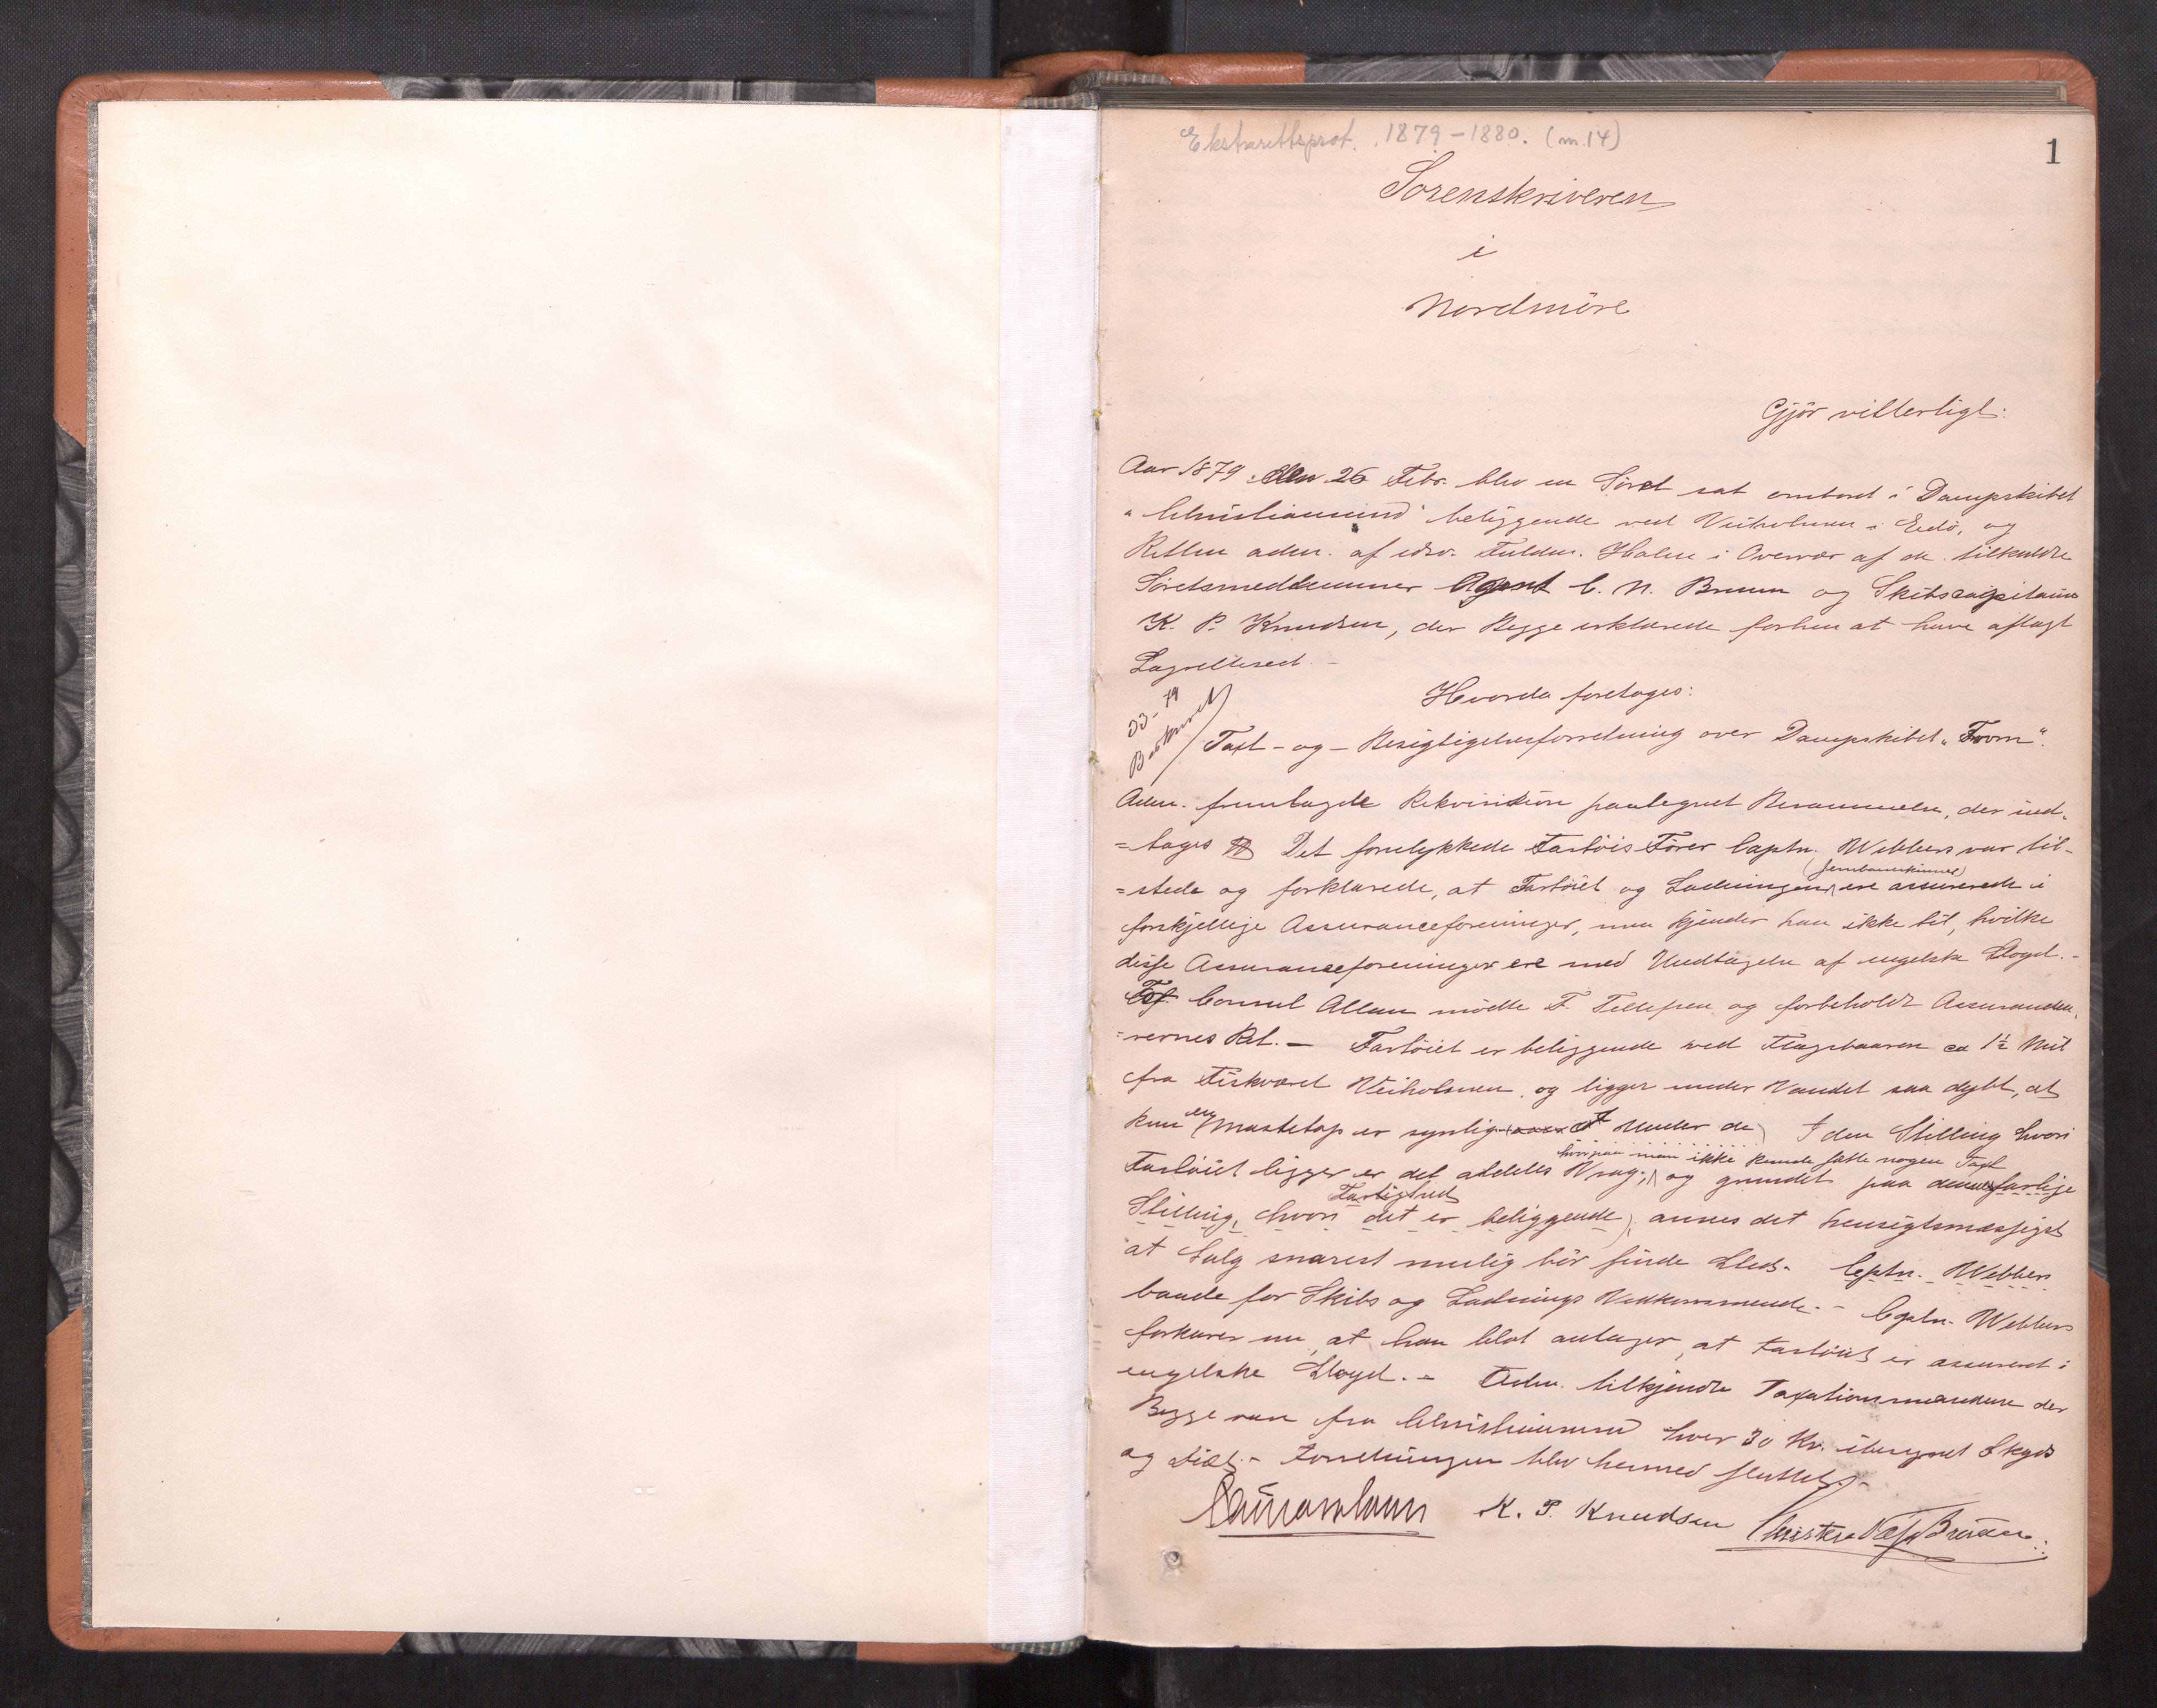 Ekstrarettsprot. 1879-1880. (nr. 14)
1
Sorenskriveren
i
Nordmöre
Gjör vitterligt:
Aar 1879 den 26 Febr. blev en Söret sat ombord i Dampskibet
"Christianssund" beliggende ved Veiholmen i Edö, og
Retten adm. af edsv. Fuldm. Holm i Overvær af de tilkaldte
Söretsmedlemmer Agent C. N. Bruun og Skibscapitain
K. P. Knudsen, der Begge erklærede forhen at have aflagt
Lagrettesed. -
33-79
Beskrevet
Hvorda foretoges:
Taxt- og - Besigtigelsesforretning over Dampskibet "Form".
Adm. fremlagde Rekvisition paategnet Berammelse, der ind-
=tages Det forulykkede Fartöis Förer Captn. Webbers var til-
(Jernbaneskinner)
=stede og forklarede, at Fartöiet og Ladningen ere assurerede i
forskjellige Assuranceforeninger, men kjender han ikke til, hvilke
disse Assuranceforeninger ere med Undtagelse af engelske Lloyd. -
For Consul Allan mödte F. Tellefsen og forbeholdt Assurandeu-
=rernes Ret. - Fartöiet er beliggende ved Flagsbaaren ca 1½ Mil
fra Fiskværet Veiholmen og ligger under Vandet saa dybt, at
kun en Mastetop er synlig Under de) I den Stilling hvori
hvorpaa man ikke kunde sætte nogen Taxt
Fartöiet ligger er det aldeles Vrag; og grundet paa dennes farlige
Farlighed
Stilling, hvori det er beliggende), ansees det hensigtsmæssigst
at Salg snarest mulig bör finde Sted. Captn. Webbers
baade for Skibs og Ladnings Vedkommende. - Captn. Webbers
forklarer nu, at han blot antager, at Fartöiet er assureret i
engelske Lloyd. - Adm. tilkjendte Taxationsmændene der
Begge vare fra Christianssund hver 30 Kr. iberegnet Skyds
og Diæt. - Forretningen blev hermed sluttet. -
K. P. Knudsen